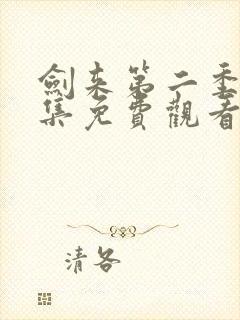 劍來第二季
集免費觀看
清各